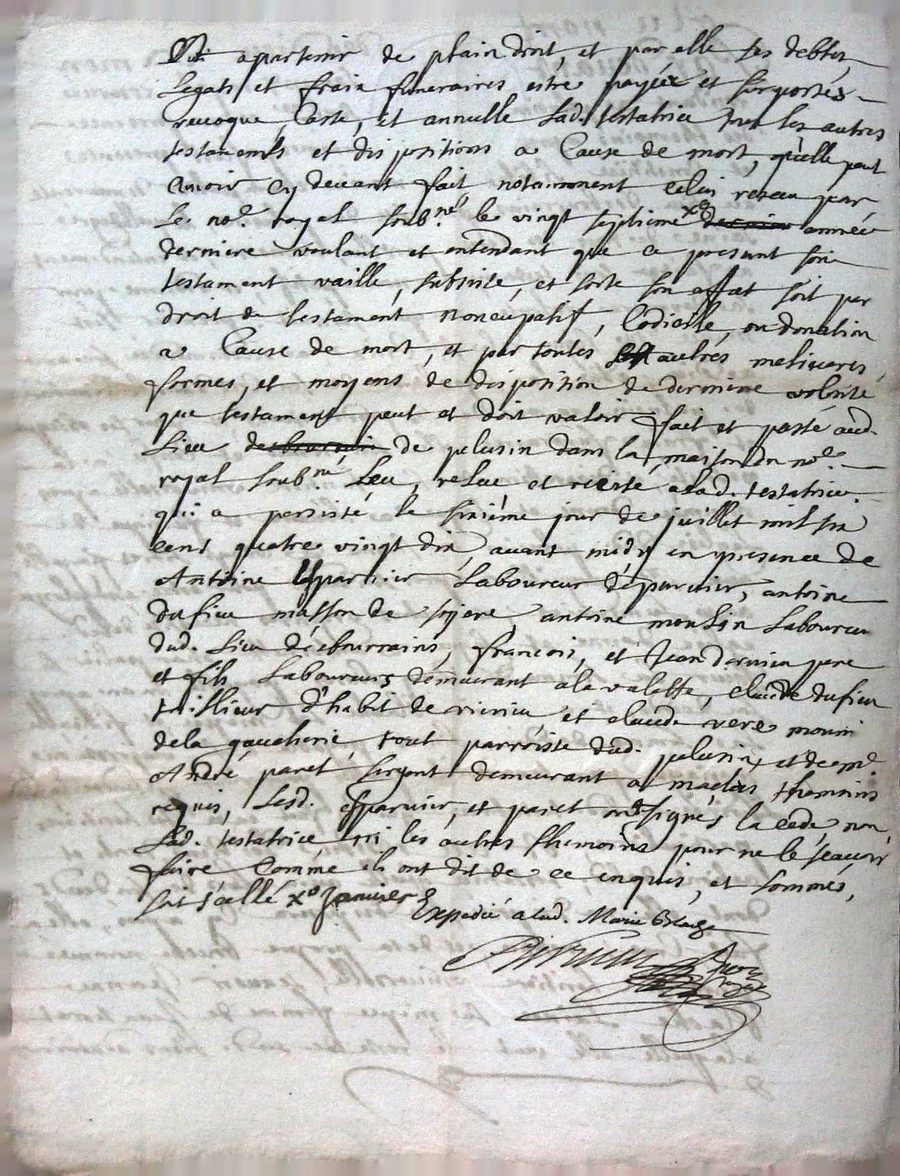 apartenir de plain droit, et par elle ses debtes
Legats et fraix funeraires estre payéz et suportés
revoque, Casse, et annulle Lad. testatrice tous les autres
testaments et dispositions a Cause de mort, qu'elle peut
avoir cy devant fait notamment celui receu par
le no.re royal soub.né le vingt septieme x.o dernier année
derniere voulant et entendant que ce present son
testament vaille, subsiste, et sorte son effaet soit par
droit de testament noncupatif, Codicille, ou donation
a Cause de mort, et par toutes autres melieures
formes, et moyens de disposition de derniere volonté
que testament peut et doit valoir, fait et passé aud.
Lieu de pelusin dans la maison du no.re
royal soub.né, Leu, releu et recité a lad. testatrice
qui a persisté le sixième jour de juillet mil six
cens quatre vingt dix, avant midy en presence de
Antoine Esparvier Laboureur d'Eparvier, antoine
dufieu masson de, antoine moulin Laboureur
dud. Lieu d'esbourrains, francois, et Jean dervieu pere
et fils Laboureurs demeurant a la valette, claude dufieu
taillieur d'habit de virieu et claude vere mouni
de la gaucherie, tout parroisse dud. pelusin, et de m.e
André paret sergent demeurant a maclas themoins
requis, Lesd. esparvier, et paret ont signés la cede, non
Lad. testatrice ni les autres themoins pour ne le sçavoir
faire Comme ils ont dit de ce enquis, et sommés,
soit scellé x.o Janvier
Expedié a lad. Marie